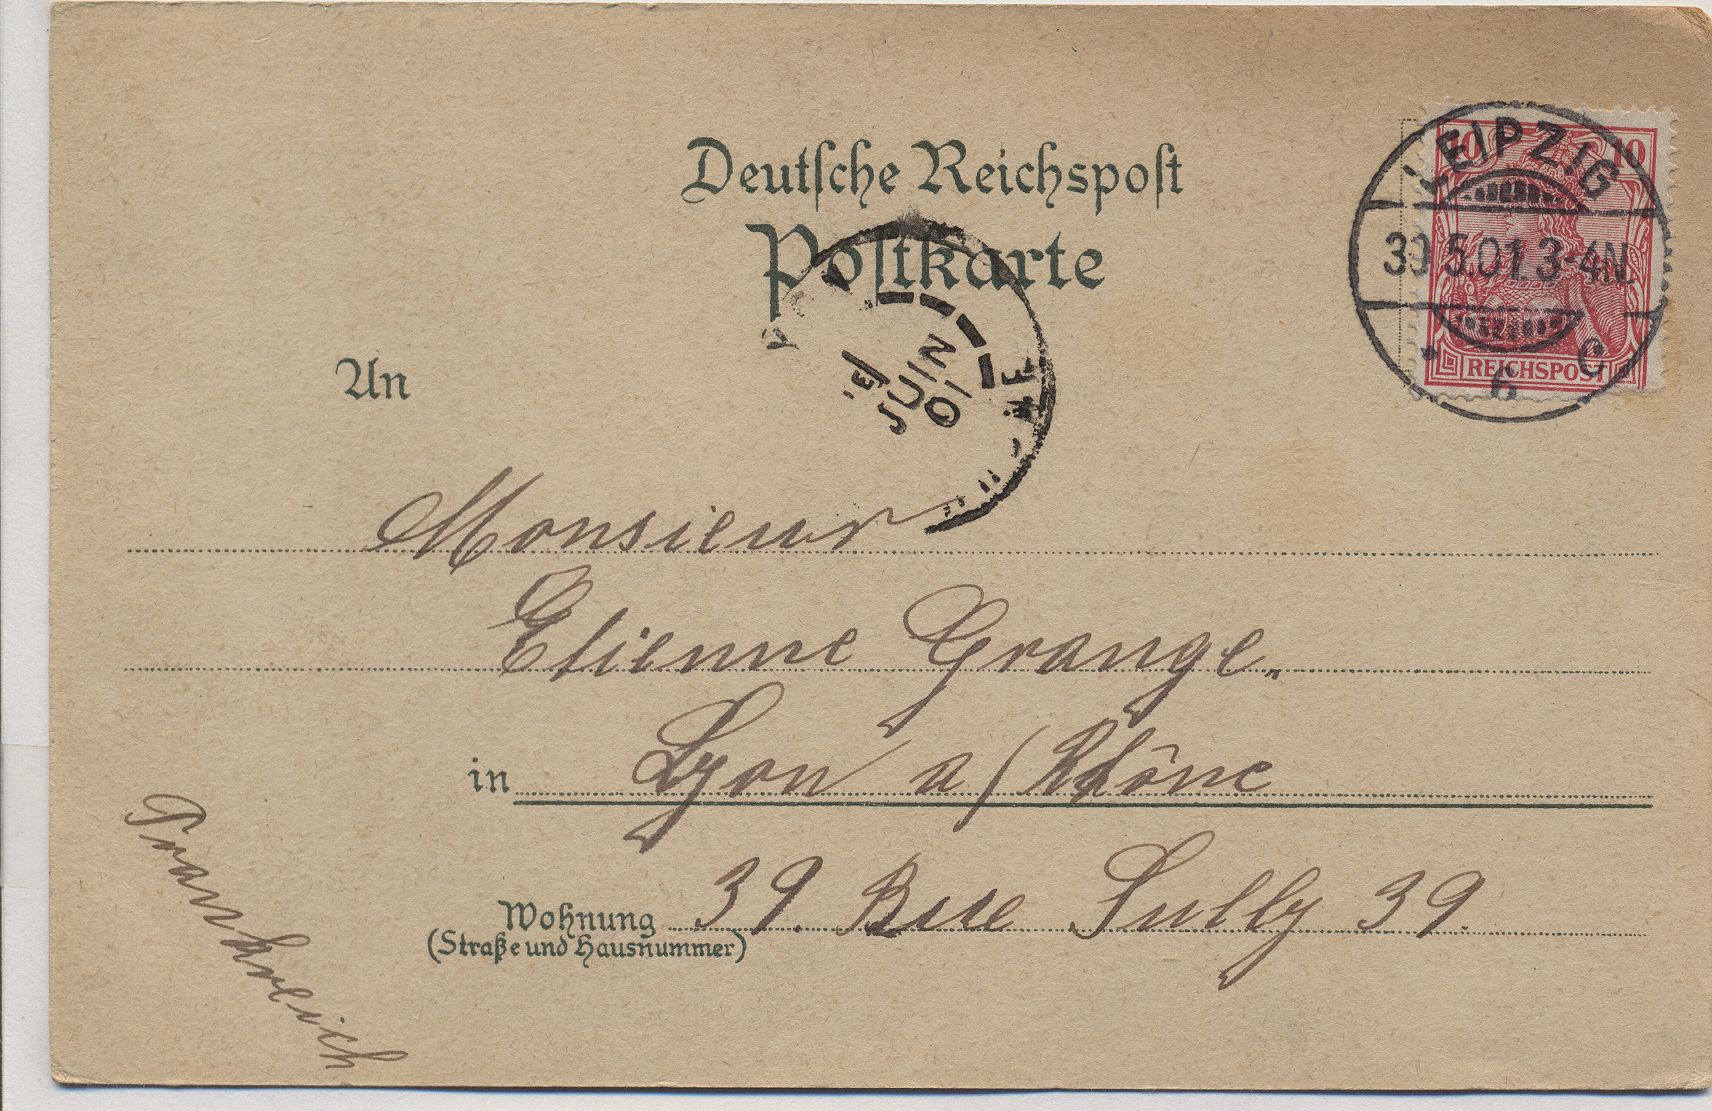 Deutsche Reichspost
Postkarte
10 10
LEIPZIG
30.5.01.3-4N.
* 6 C
REICHSPOST
JUIN
01
An
Monsieur
Etienne Grange.
in Lyon a/Rhône
Wohnung 39. Rue Sully 39.
(Straße und Hausnummer)
Frankreich